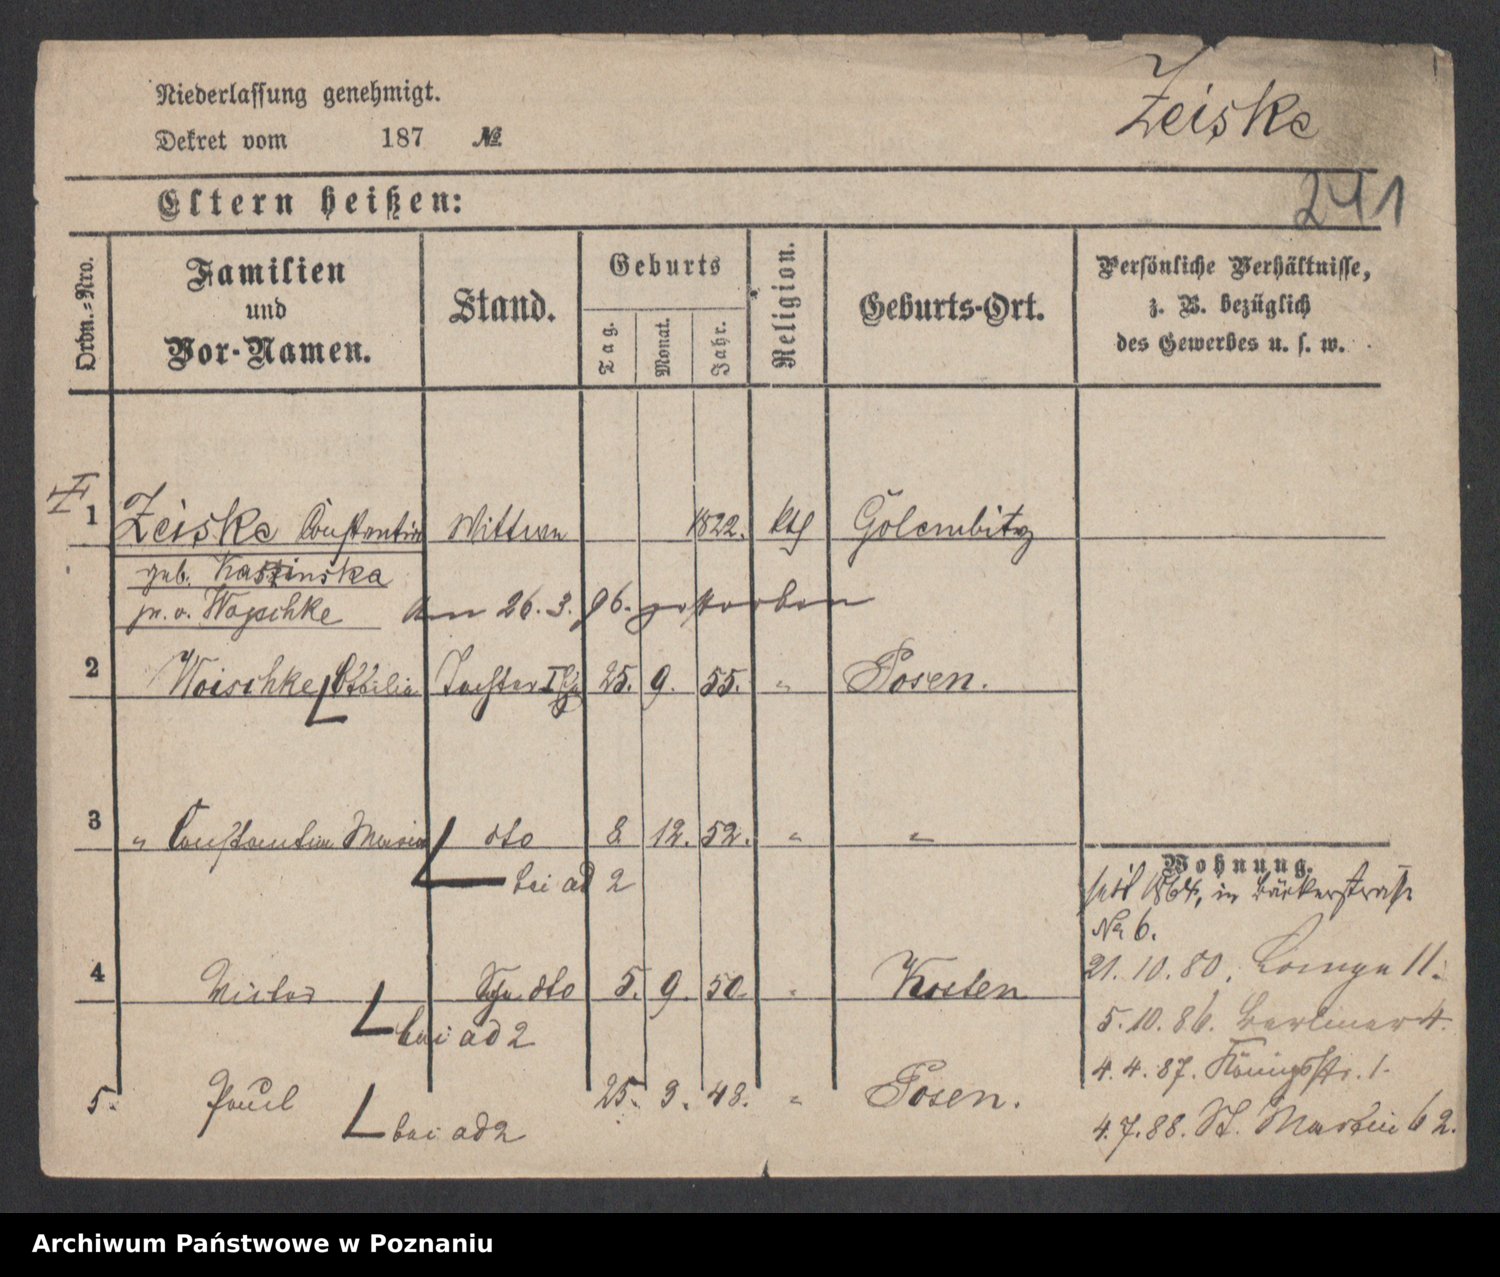 Niederlassung genehmigt.
Zeiske
Dekret vom 187 №
241
Eltern heißen:
Ordn.-Nro.
Familien und Vor-Namen.
Stand.
Geburts
Tag.
Monat.
Jahr.
Religion.
Geburts-Ort.
Persönliche Verhältnisse,
z. B. bezüglich
des Gewerbes u. s. w.
1 Zeiske Constantia Wittwe 1822. kth Golembitz
geb. Kaszinska
pr. v. Woyschke am 26.3.96. gestorben
2 Woischke Ottilia Tochter I 25. 9. 55. " Posen.
3 " Constantia Maria dto 8 12. 52. " "
bei ad 2
Wohnung.
seit 1864, in Bäckerstraße
No 6.
4 Victor Sohn dto 5. 9. 50. " Kosten
bei ad 2
21.10.80. Lange 11.
5.10.86. Berliner 4.
4.4.87. Königsstr. 1.
5. Paul 25. 3. 48. " Posen.
bei ad 2
4.7.88. St. Martin 62.
Archiwum Państwowe w Poznaniu